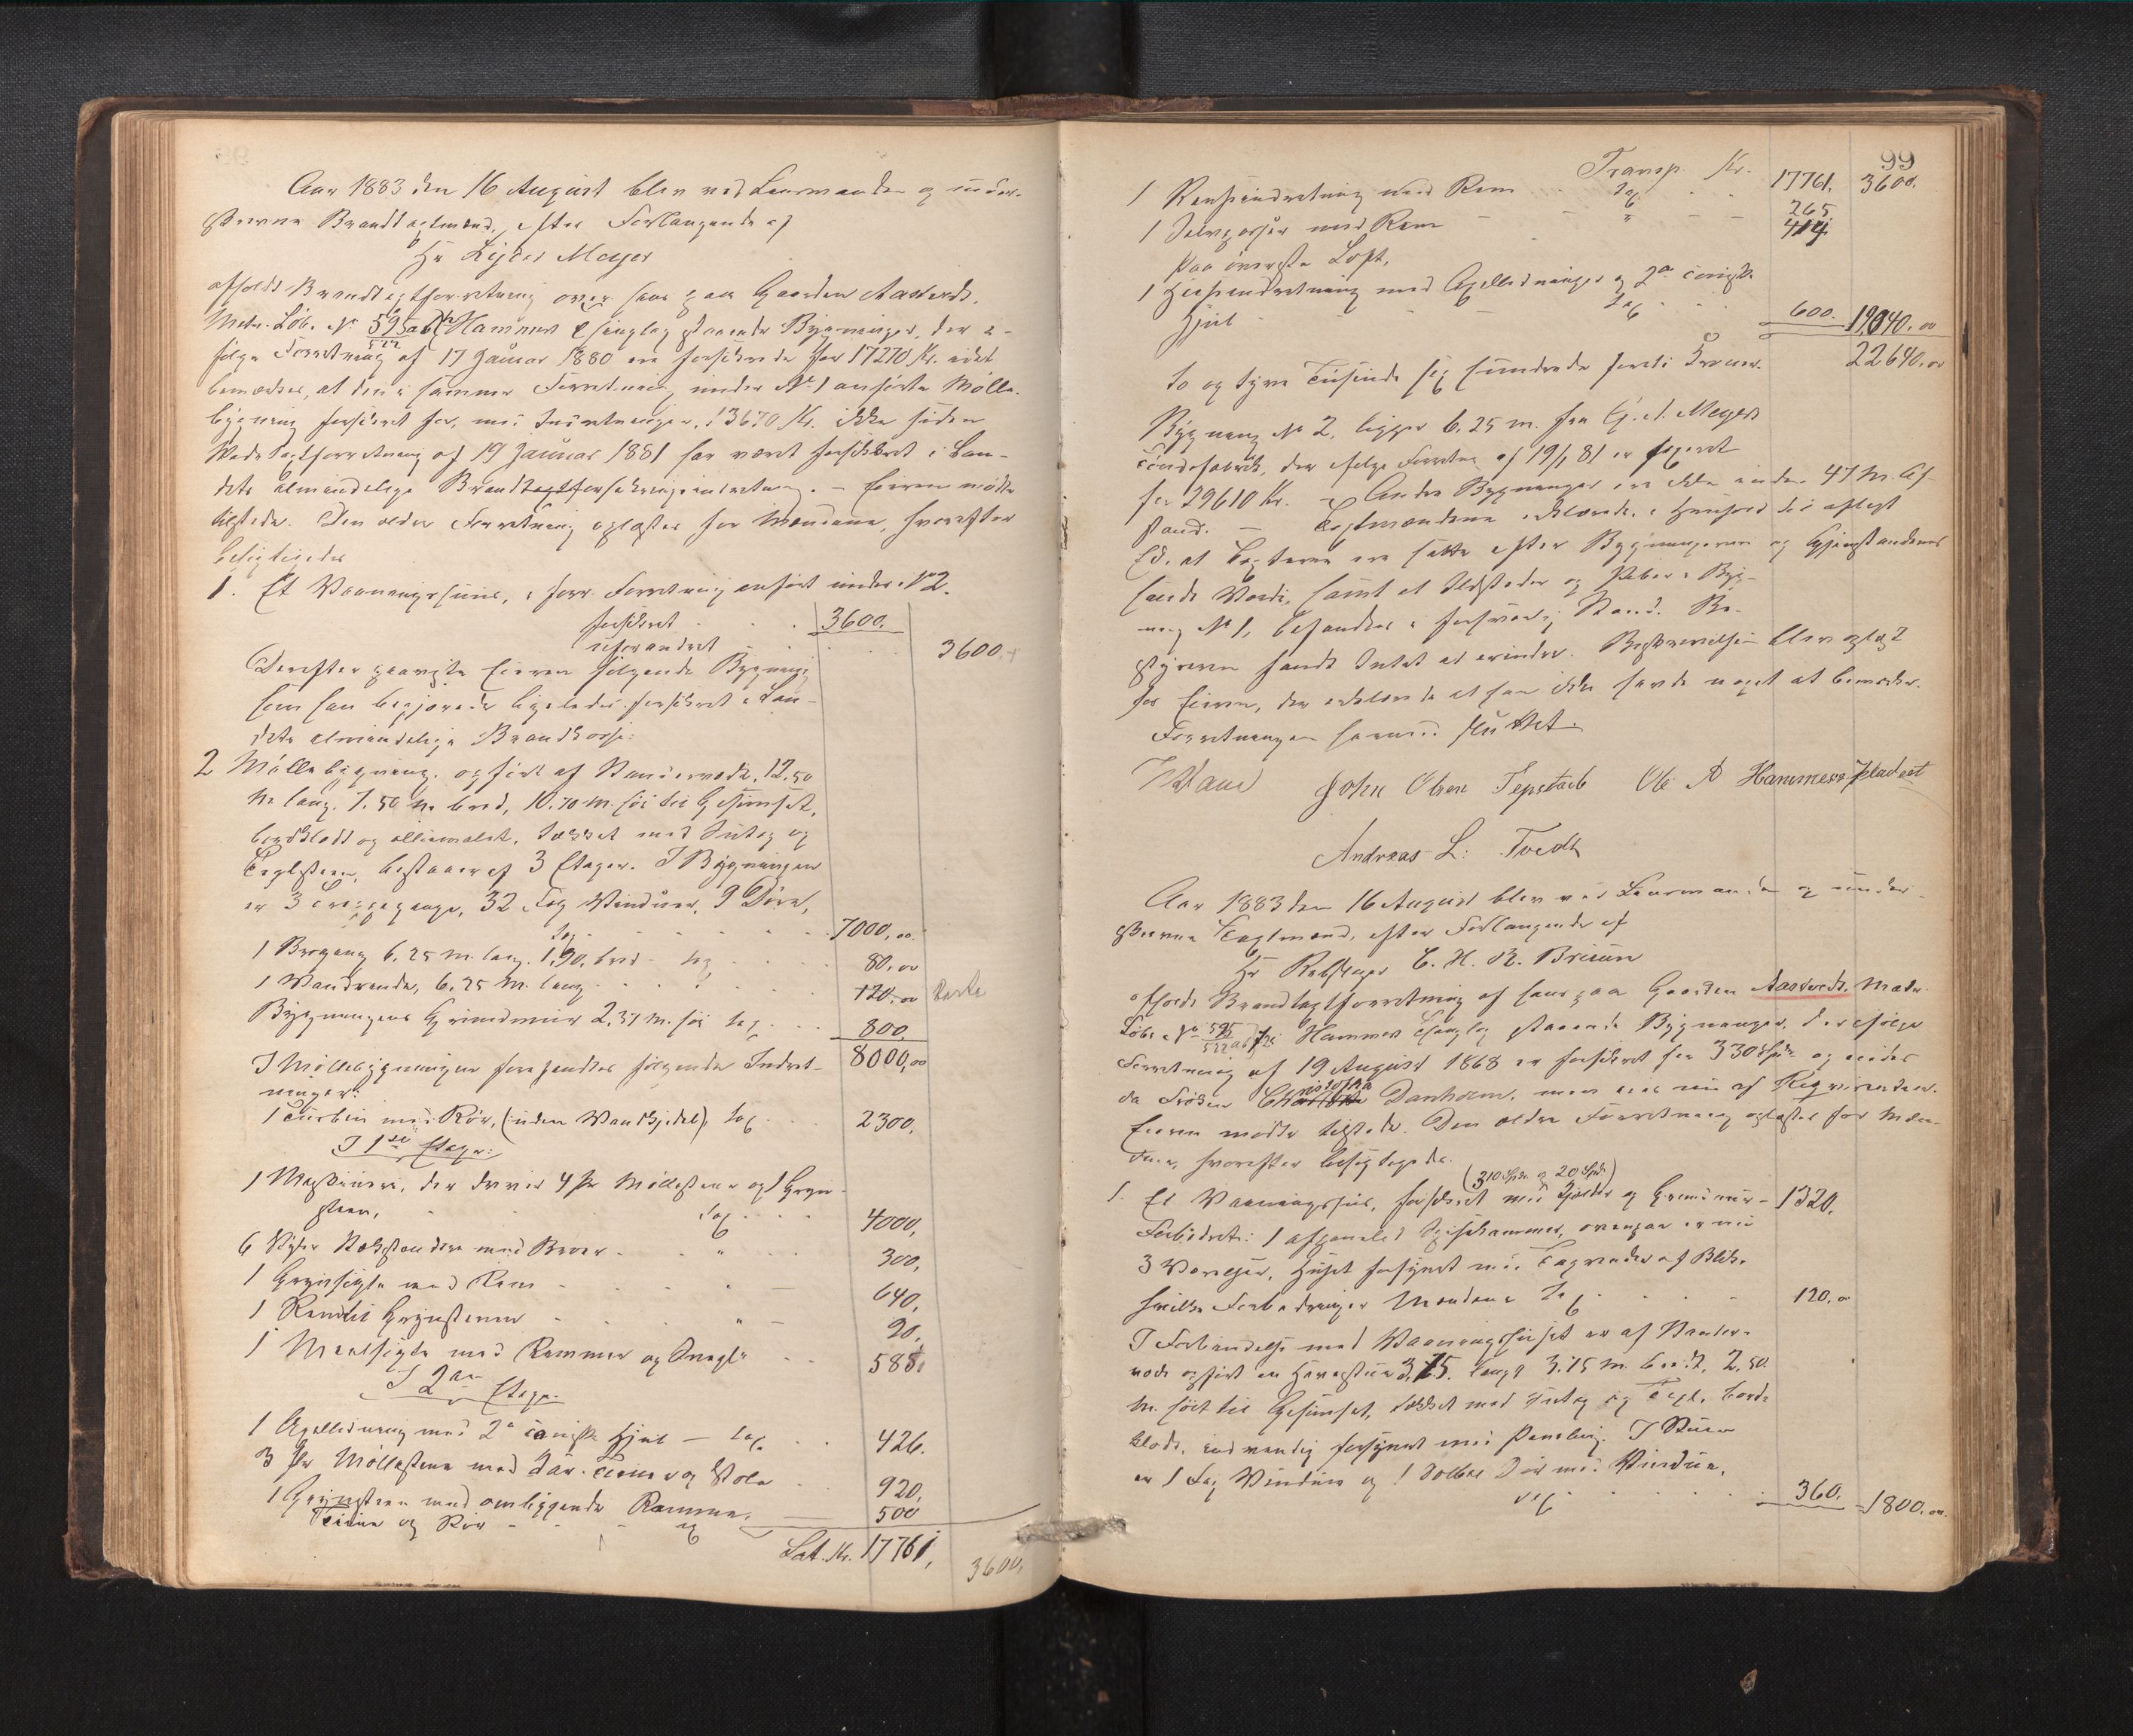 Aar 1883 den 16 August blev ved Lensmanden og under-
skrevne Brandtagtmænd, efter Forlangende af
Hr Lyder Meyer
afholdt Brandtagtforretning over hans paa Gaarden Aastvedt,
Matr. Løb. No 595ab/522 Hammers Thinglag staaende Bygninger, der i-
følge Forretning af 17 Januar 1880 ere forsikrede for 17270 Kr. idet
bemærkes, at den i samme Forretning under No 1 anførte Mølle-
bygning forsikret for, med Indretninger, 13670 Kr. ikke siden
Skadetagtforretning af 19 Januar 1881 har været forsikret i Lan-
dets almindelige Brandforsikringsindretning. – Eieren mødte
tilstede. Den ældre Forretning oplæstes for Mændene, hvorefter
besigtigedes
1. Et Vaaningshuus, i forr. Forretning anført under No 2.
forsikret . . . 3600.
uforandret . . . 3600.
Derefter paaviste Eieren følgende Bygning
som han begjærede ligeledes forsikret i Lan-
dets almindelige Brandkasse:
2 Møllebygning, opført af Standerværk, 12,50
m lang, 7.50 m bred, 10.70 m. høi til Gesimset,
bordklædt og olliemalet, tækket med Sutag og
Taglsteen, bestaaer af 3 Etager. I Bygningen
er 3 Trappegange, 32 Fag Vinduer, 9 Døre,
Tax . . . 7000,00.
1 Brogang 6.25 m. lang, 1,90, bred – tax . . . 80,00
1 Vandrende, 6.25 m. lang . . . 120,00
Bygningens Grundmuur 2.37 m. høi tax . . . 800.
8000,00
I Møllebygningen forefandtes følgende Indret-
ninger:
1 Turbin med Rør, (uden Vandkjedel), tax . . 2300,
I 1ste Etage:
1 Maskineri, der driver 4 Par Møllestene og 1 Gryn-
steen, tax . . . 4000,
6 Stkr Støbestandere med Buer . . " . . 300,
1 Grynsigte med Rem – . " – 640,
1 Rem til Grynstenen – . " – 20,
1 Meelsigte med Remmer og Snegle . . 585,
I 2den Etage.
1 Axelledning med 2de coniske Hjul – tax . . 426.
3 Par Møllestene med Kar, Teiner og Stole . . 920,
1 Grynsteen med omliggende Ramme,
Teine og Rør – – – tax 500
Lat. Kr. 17761, 3600,
99
Transp. Kr. 17761. 3600.
1 Rensindretning med Rem . tax . . 265
1 med Rem – – " – – 414.
Paa øverste Loft,
1 Heiseindretning med Axelledninger og 2de coniske
Hjul – . . . tax . . 600. 19040.00
22640.00
to og tyve Tusinde sex hundrede firti Kroner.
Bygning No 2, ligger 6.25 m. fra G. A. Meyers
Tøndefabrik, der ifølge Forretn. af 19/1 81 er taxeret
for 29610 Kr. – Andre Bygninger ere ikke inden 47 m. Af-
stand. – Tagtmændene erklærede i Henhold til aflagt
Ed, at Taxterne ere satte efter Bygningernes og Gjenstandenes
sande Værdi, samt at Ildsteder og Piber i Byg-
ning No 1, befandtes i forsvarlig Stand. Be-
styreren fandt Intet at erindre. Beskrivelsen blev oplæst
for Eieren, der erklærede at han ikke havde noget at bemærke.
Forretningen hermed sluttet.
John Olsen Tepstad Ole A Hammerspladset
Andreas L. Tvedt
Aar 1883 den 16 August blev ved Lensmanden og under-
skrevne Tagtmænd, efter Forlangende af
Hr Rebslager C. H. R. Bruun
afholdt Brandtagtforretning af hans paa Gaarden Aastvedt, Matr.
Løbe No 595/522 ab, Hammers Thinglag staaende Bygninger, der ifølge
Forretning af 19 August 1868 er forsikret for 330 Spdr og eiedes
da Frøken Danholm, men eies nu af Reqvirenten.
Eieren mødte tilstede. Den ældre Forretning oplæstes for Mæn-
dene, hvorefter besigtigedes.
(310 Spdr og 20 Spdr)
1. Et Vaaningshuus, forsikret med Kjelder og Grundmuur – 1320.
Forbedret: 1 afpanelet Spisekammer, ovenpaa er nu
3 Værelser, Huset forsynet med Tagrender af Blik.
hvilke Forbedringer Mændene tax . . . 120.00
I Forbindelse med Vaaningshuset er af Stander-
værk opført en Havestue 3.75. lang 3.75 m. bred, 2.50.
m. høi til Gesimset, tækket med Sutag og Tegl, bord-
klædt, indvendig forsynet med Paneling. I Stuen
er 1 Fag Vindue og 1 dobbel Dør med Vindue.
tax . . . 360. 1800.00